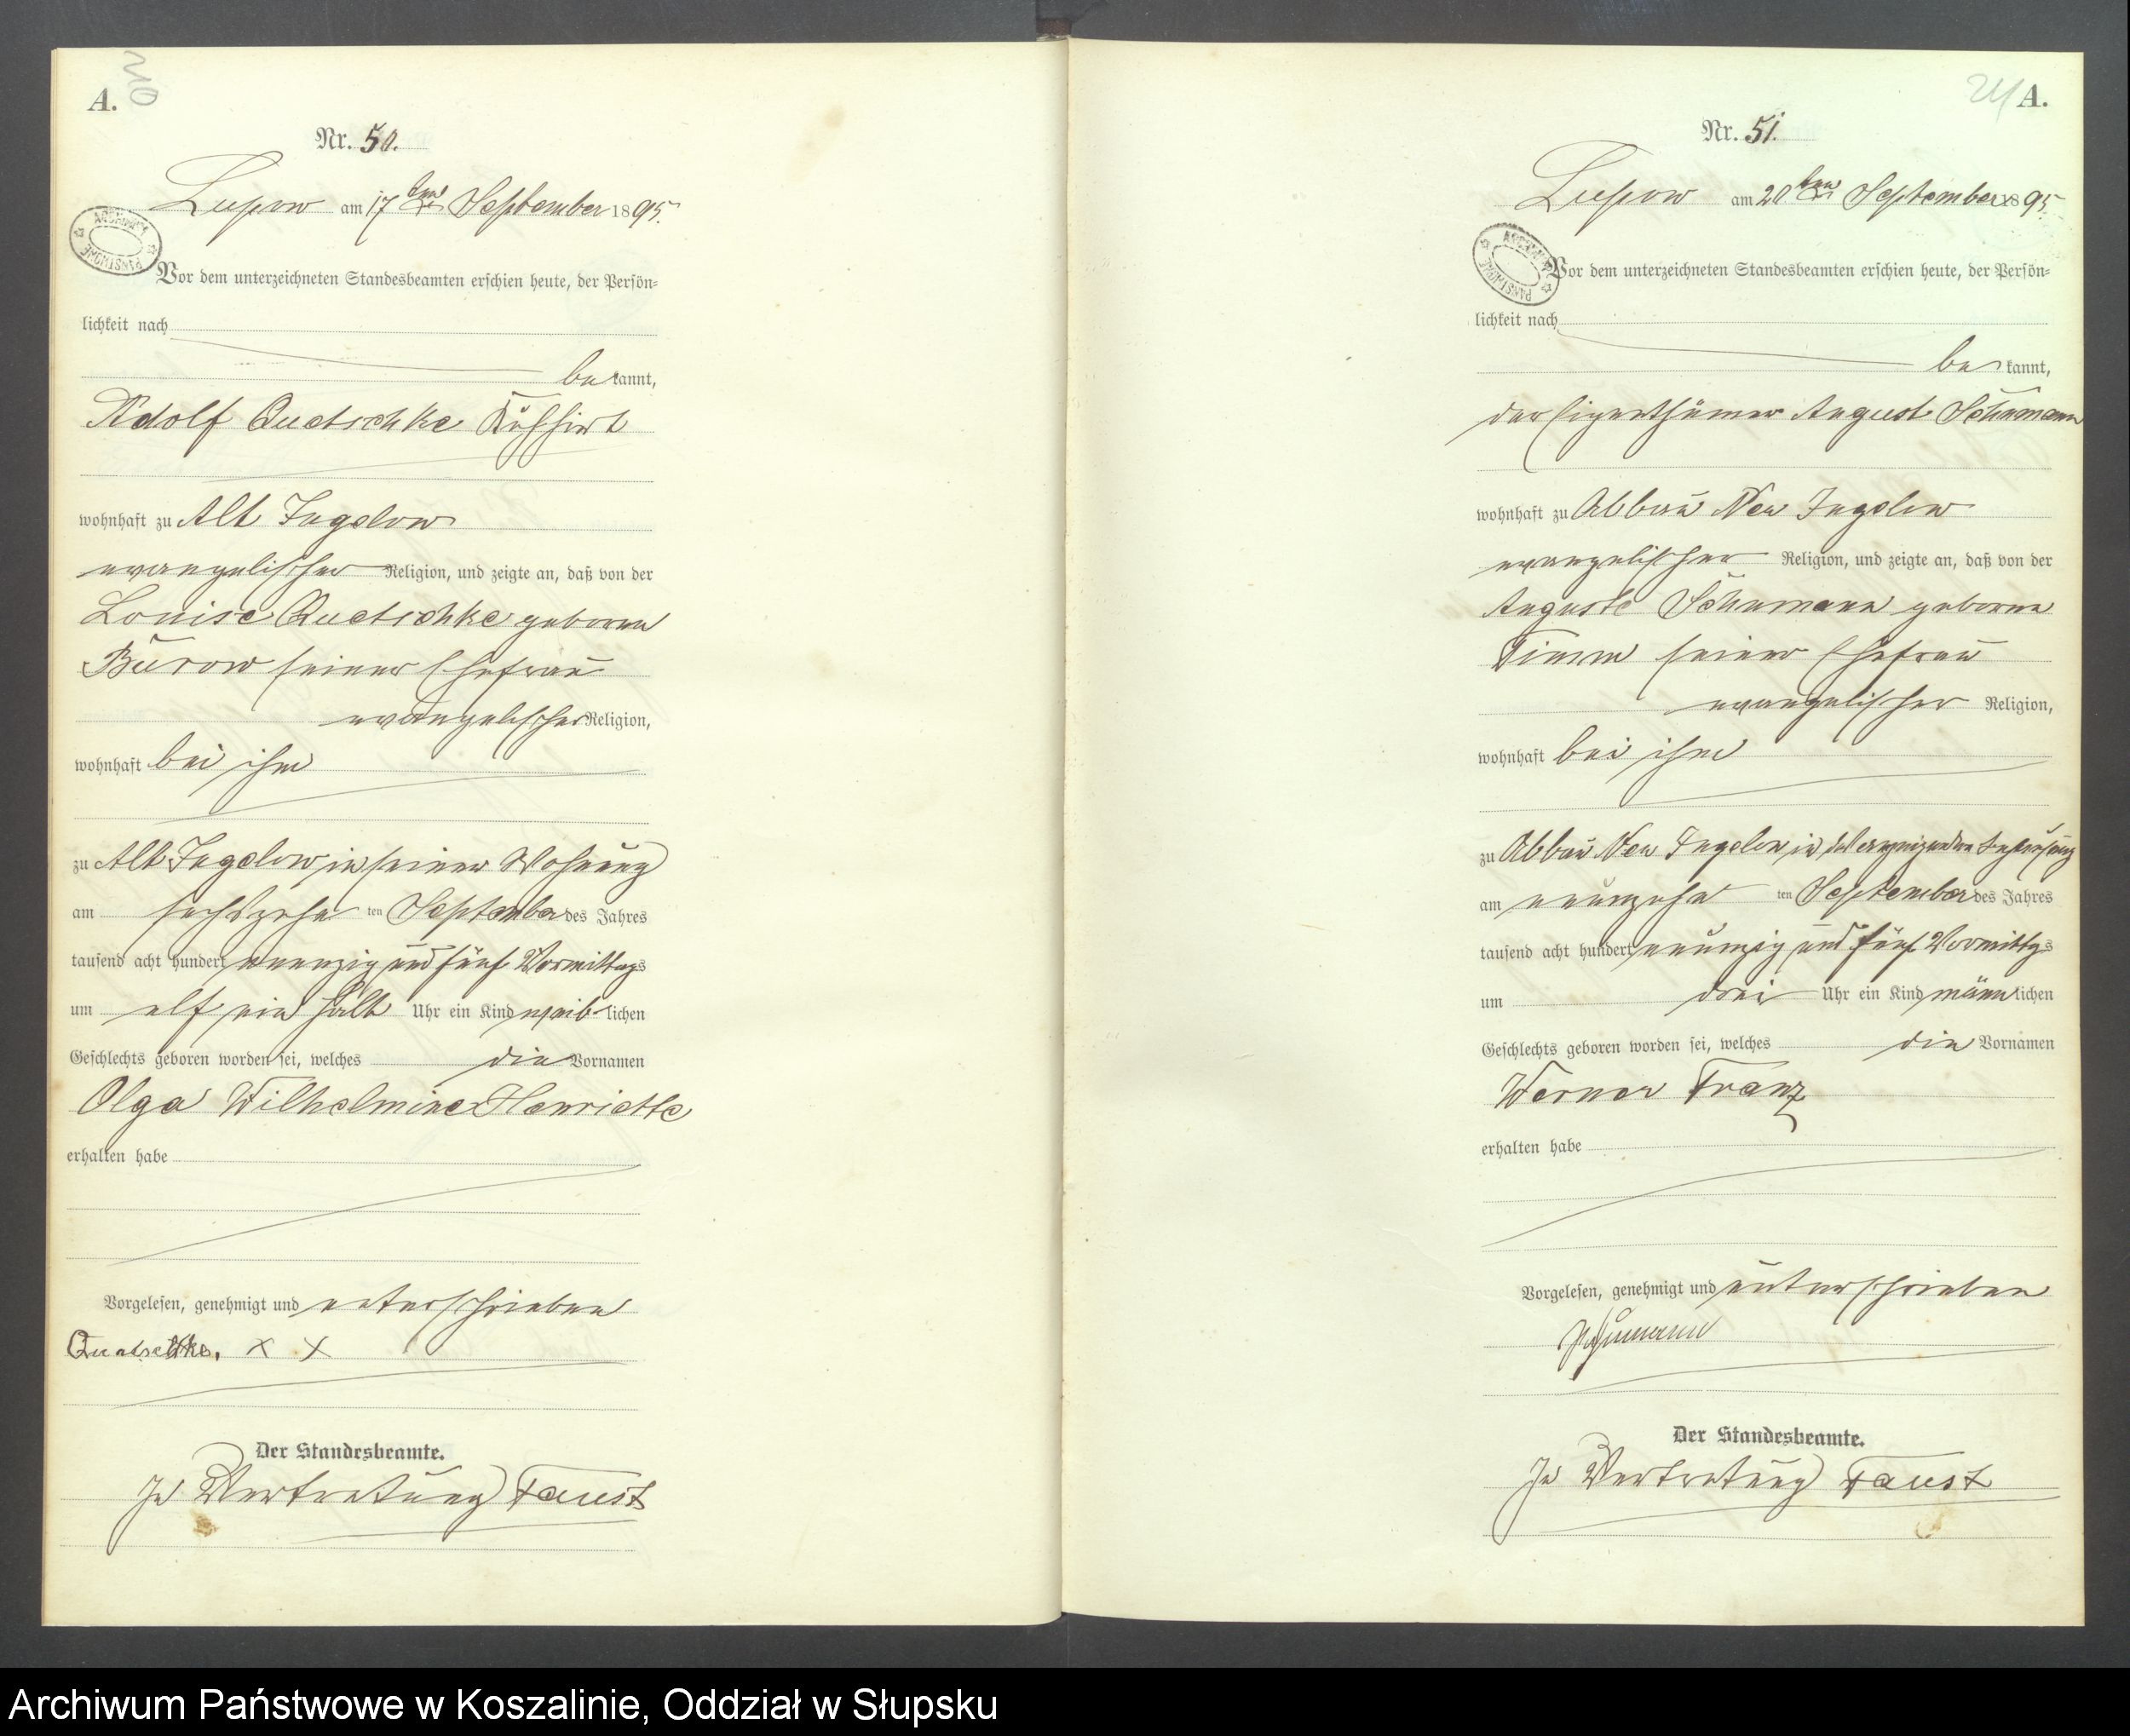 A.
Nr. 50.
Lupow am 17 ten September 1895.
Vor dem unterzeichneten Standesbeamten erschien heute, der Persön=
lichkeit nach
bekannt,
Adolf Quetschke Kuhhirt
wohnhaft zu Alt Jugelow
evangelischer Religion, und zeigte an, daß von der
Louise Quetschke geborene
Burow seiner Ehefrau
evangelischer Religion,
wohnhaft bei ihm
zu Alt Jugelow in seiner Wohnung
am sechszehn ten September des Jahres
tausend acht hundert neunzig und fünf Vormittags
um elf ein halb Uhr ein Kind weiblichen
Geschlechts geboren worden sei, welches die Vornamen
Olga Wilhelmine Henriette
erhalten habe
Vorgelesen, genehmigt und unterschrieben
Quetschke. x x
Der Standesbeamte.
In Vertretung Faust
24 A.
Nr. 51.
Lupow am 20 ten September 1895
Vor dem unterzeichneten Standesbeamten erschien heute, der Persön=
lichkeit nach
bekannt,
der Eigenthümer August Schumann
wohnhaft zu Abbau Neu Jugelow
evangelischer Religion, und zeigte an, daß von der
Auguste Schumann geborene
Timm seiner Ehefrau
evangelischer Religion,
wohnhaft bei ihm
zu Abbau Neu Jugelow in der Behausung
am neunzehn ten September des Jahres
tausend acht hundert neunzig und fünf Vormittgs
um drei Uhr ein Kind männlichen
Geschlechts geboren worden sei, welches die Vornamen
Werner Franz
erhalten habe
Vorgelesen, genehmigt und unterschrieben
Schumann
Der Standesbeamte.
In Vertretung Faust
Archiwum Państwowe w Koszalinie, Oddział w Słupsku